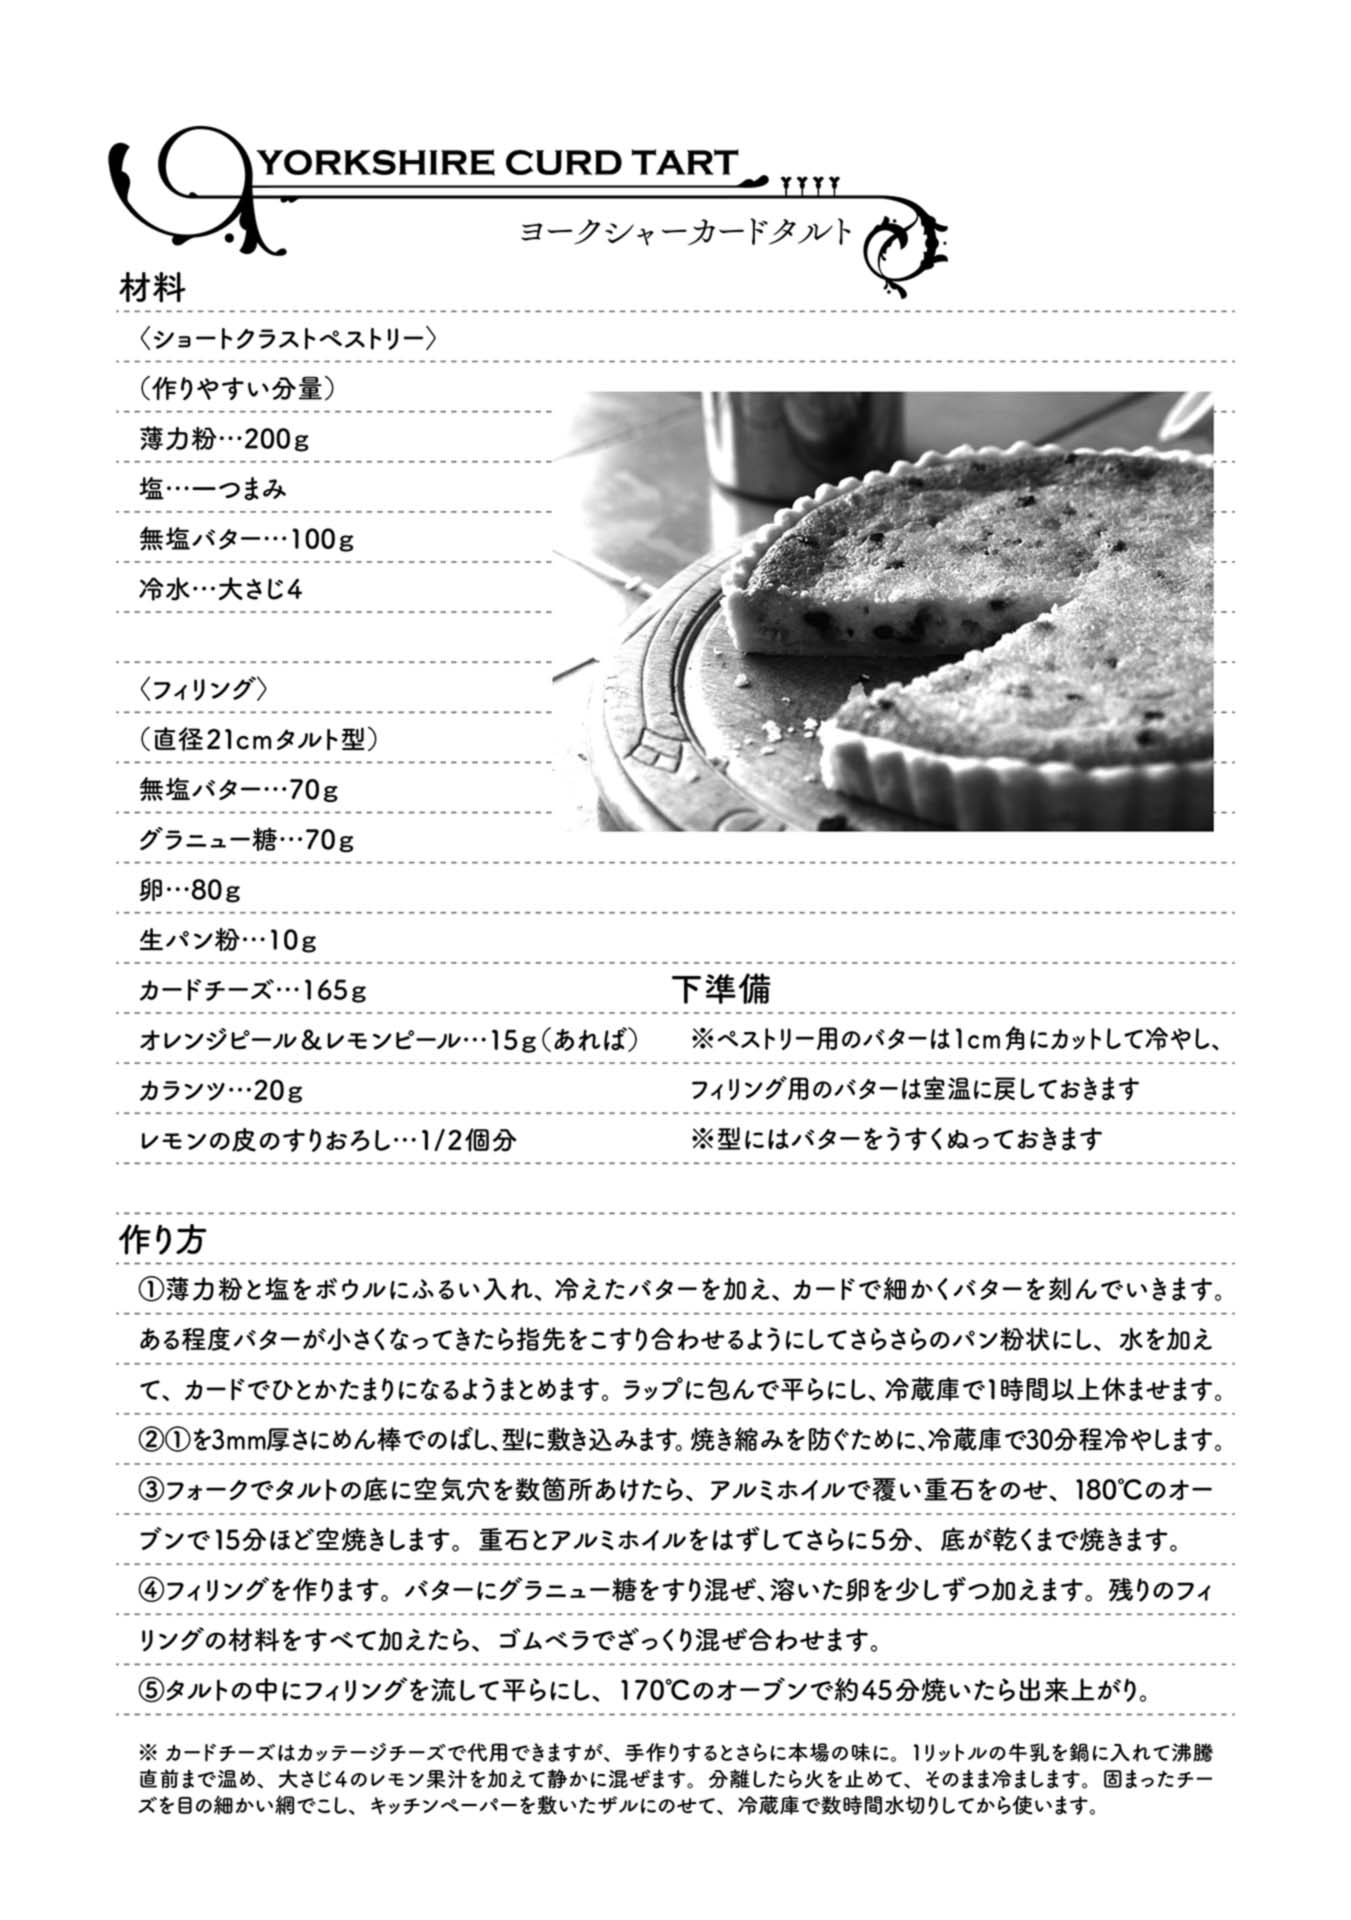 YORKSHIRE CURD TART
ヨークシャーカードタルト
材料
〈ショートクラストペストリー〉
（作りやすい分量）
薄力粉…200g
塩…一つまみ
無塩バター…100g
冷水…大さじ4
〈フィリング〉
（直径21cmタルト型）
無塩バター…70g
グラニュー糖…70g
卵…80g
生パン粉…10g
カードチーズ…165g
オレンジピール＆レモンピール…15g（あれば）
カランツ…20g
レモンの皮のすりおろし…1/2個分
下準備
※ペストリー用のバターは1cm角にカットして冷やし、
フィリング用のバターは室温に戻しておきます
※型にはバターをうすくぬっておきます
作り方
①薄力粉と塩をボウルにふるい入れ、冷えたバターを加え、カードで細かくバターを刻んでいきます。
ある程度バターが小さくなってきたら指先をこすり合わせるようにしてさらさらのパン粉状にし、水を加え
て、カードでひとかたまりになるようまとめます。ラップに包んで平らにし、冷蔵庫で1時間以上休ませます。
②①を3mm厚さにめん棒でのばし、型に敷き込みます。焼き縮みを防ぐために、冷蔵庫で30分程冷やします。
③フォークでタルトの底に空気穴を数箇所あけたら、アルミホイルで覆い重石をのせ、180℃のオー
ブンで15分ほど空焼きします。重石とアルミホイルをはずしてさらに5分、底が乾くまで焼きます。
④フィリングを作ります。バターにグラニュー糖をすり混ぜ、溶いた卵を少しずつ加えます。残りのフィ
リングの材料をすべて加えたら、ゴムベラでざっくり混ぜ合わせます。
⑤タルトの中にフィリングを流して平らにし、170℃のオーブンで約45分焼いたら出来上がり。
※ カードチーズはカッテージチーズで代用できますが、手作りするとさらに本場の味に。1リットルの牛乳を鍋に入れて沸騰
直前まで温め、大さじ4のレモン果汁を加えて静かに混ぜます。分離したら火を止めて、そのまま冷まします。固まったチー
ズを目の細かい網でこし、キッチンペーパーを敷いたザルにのせて、冷蔵庫で数時間水切りしてから使います。